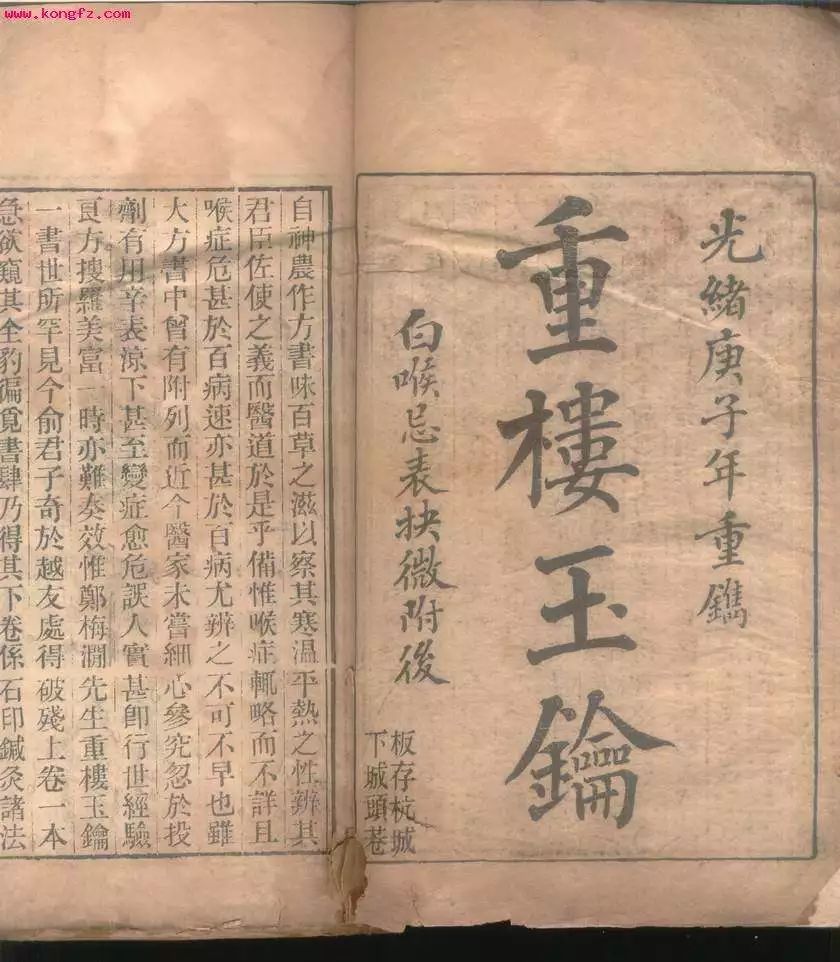 www.kongfz.com
光緒庚子年重鐫
重樓玉鑰
白喉忌表抉微附後
板存杭城
下城頭巷
自神農作方書味百草之滋以察其寒溫平熱之性辨其
君臣佐使之義而醫道於是乎備惟喉症輒略而不詳且
喉症危甚於百病速亦甚於百病尤辨之不可不早也雖
大方書中曾有附列而近今醫家未嘗細心參究忽於投
劑有用辛表涼下甚至變症愈危誤人實甚卽行世經驗
良方搜羅美富一時亦難奏效惟鄭梅澗先生重樓玉鑰
一書世所罕見今俞君子奇於越友處得破殘上卷一本
急欲窺其全豹徧覓書肆乃得其下卷係石印鍼灸諸法